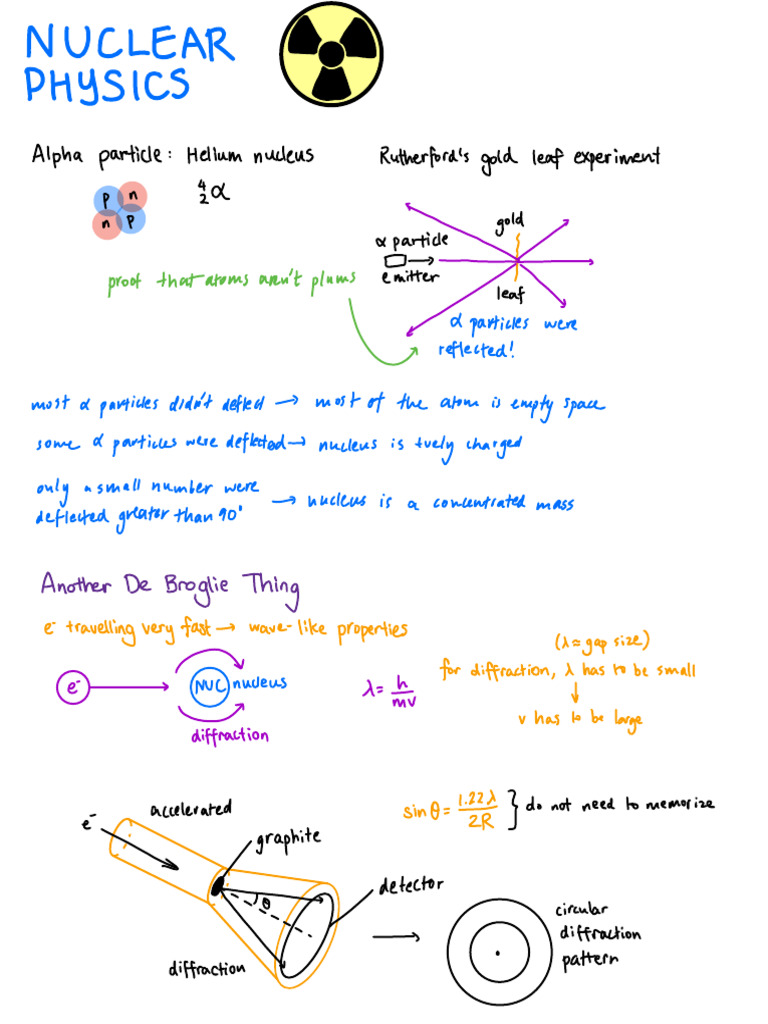 NUCLEAR
PHYSICS
Alpha particle: Helium nucleus
⁴₂α
p n
n p
Rutherford's gold leaf experiment
gold
α particle
emitter
leaf
proof that atoms aren't plums
α particles were
reflected!
most α particles didn't deflect → most of the atom is empty space
some α particles were deflected → nucleus is +vely charged
only a small number were
deflected greater than 90° → nucleus is a concentrated mass
Another De Broglie Thing
e⁻ travelling very fast → wave-like properties
e⁻
NUC nucleus
diffraction
λ = h/mv
(λ ≈ gap size)
for diffraction, λ has to be small
↓
v has to be large
sin θ = 1.22λ/2R } do not need to memorize
e⁻
accelerated
graphite
θ
detector
diffraction
circular
diffraction
pattern